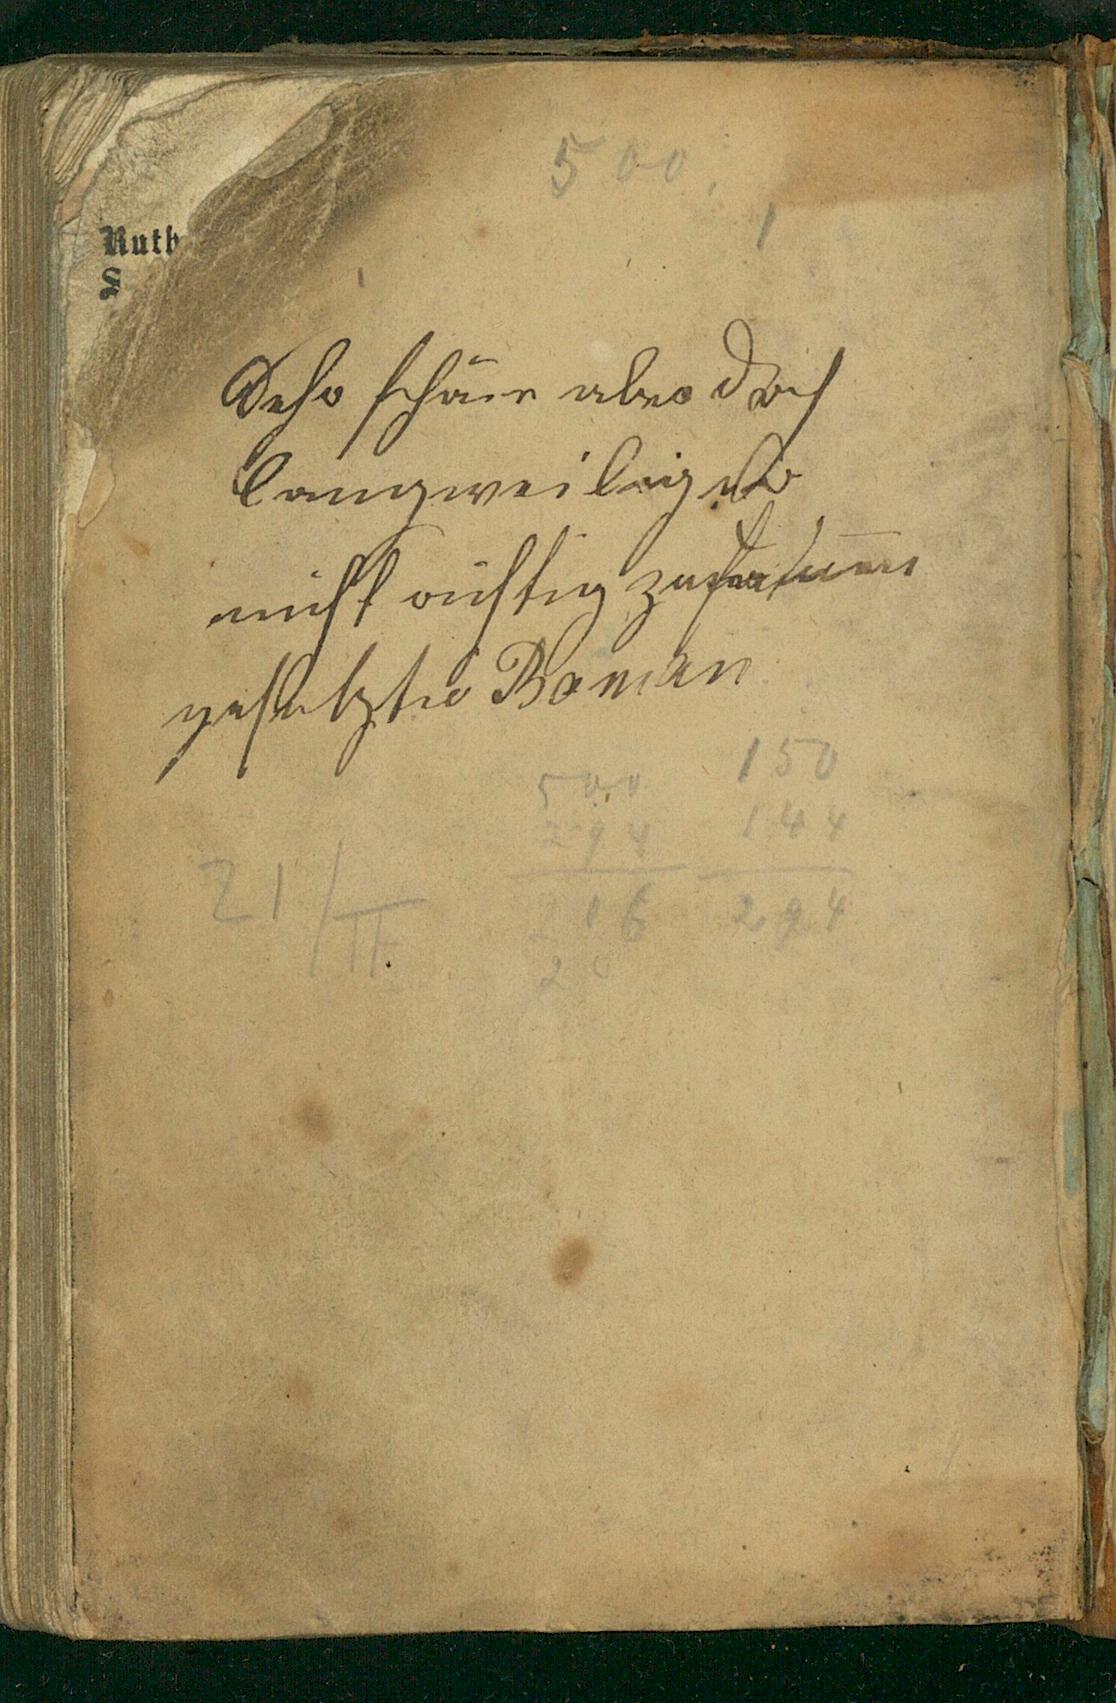 500.
1
Ruth
L
Sehr schöner aber doch
langweiliger
nicht richtig zusammen
gesetzter Roman
500 150
294 144
206 294
20
21/II